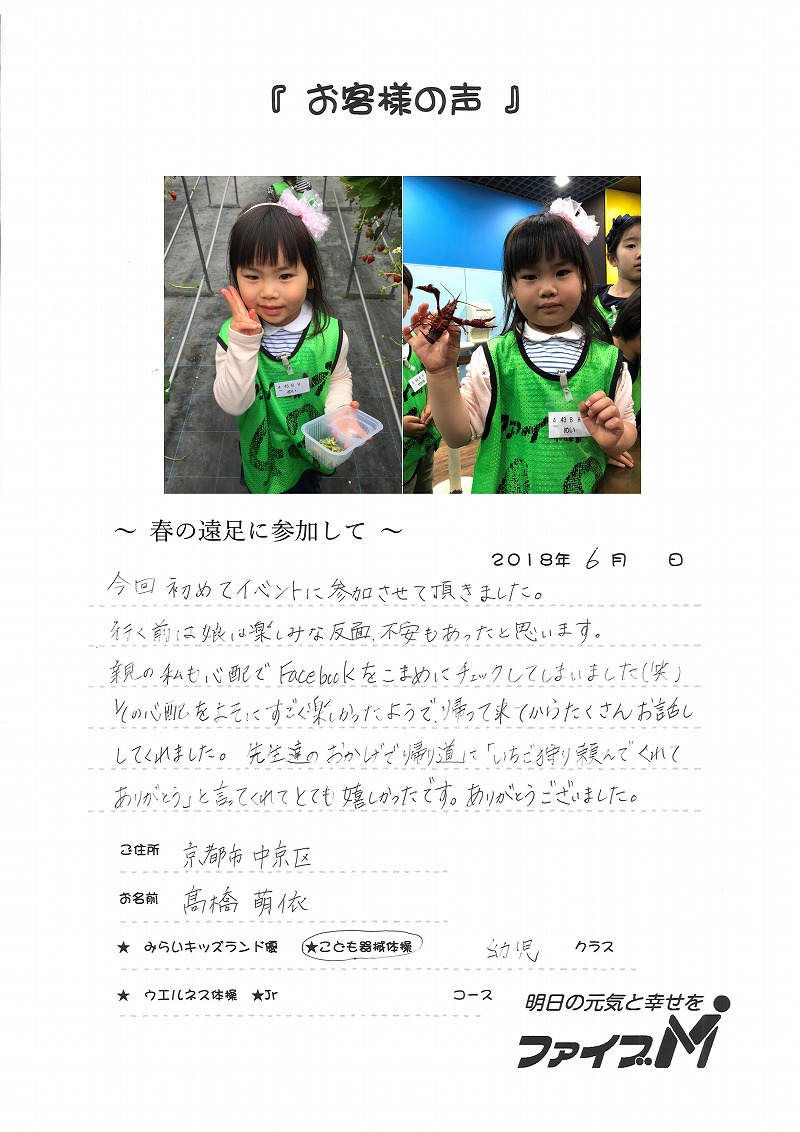 『 お客様の声 』
4 43 B H
めい
4 43 B H
めい
ファイブ
～ 春の遠足に参加して ～
2018年 6 月 日
今回 初めてイベントに参加させて頂きました。
行く前は娘は楽しみな反面、不安もあったと思います。
親の私も心配でFacebookをこまめにチェックしてしまいました(笑)
その心配をよそにすごく楽しかったようで、帰って来てからたくさんお話し
してくれました。 先生達のおかげで帰り道に「いちご狩り頼んでくれて
ありがとう」と言ってくれてとても嬉しかったです。ありがとうございました。
ご住所 京都市中京区
お名前 髙橋 萌依
★ みらいキッズランド優 ★こども器械体操 幼児 クラス
★ ウエルネス体操 ★Jr コース
明日の元気と幸せを
ファイブM